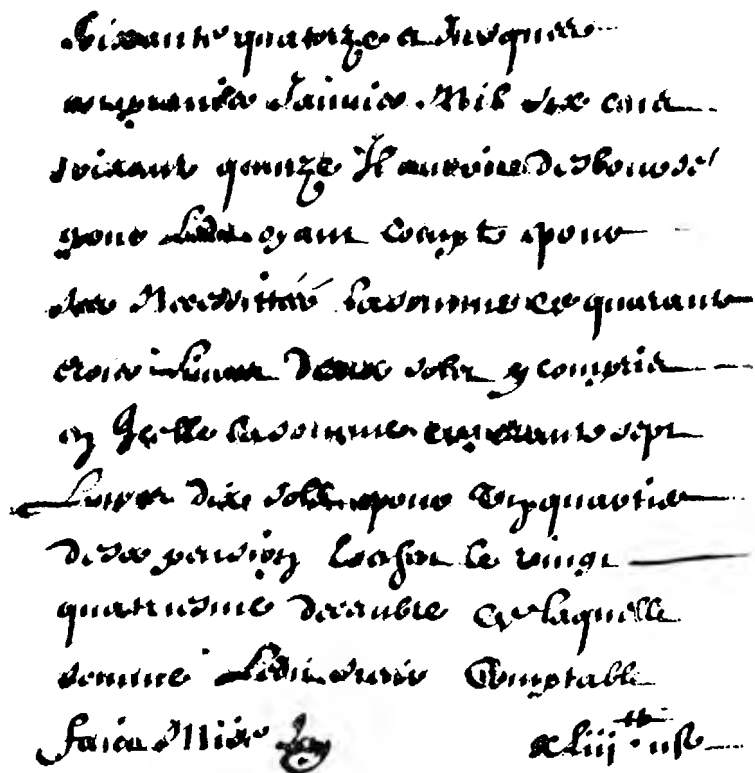 soixante quatorze et Jusques
au premier Janvier Mil six cent
soixante quinze Il auroit desboursé
pour ledit oyant compte pour
ses Necessittés la somme de quarante
trois livres deux solz y compris
en Icelle la somme de trante sept
Livres dix solz pour Ung quartier
de sa pension Eschu le vingt
quatriesme decembre De laquelle
somme Ledit Comptable
faict Mise xLiii tt ii s